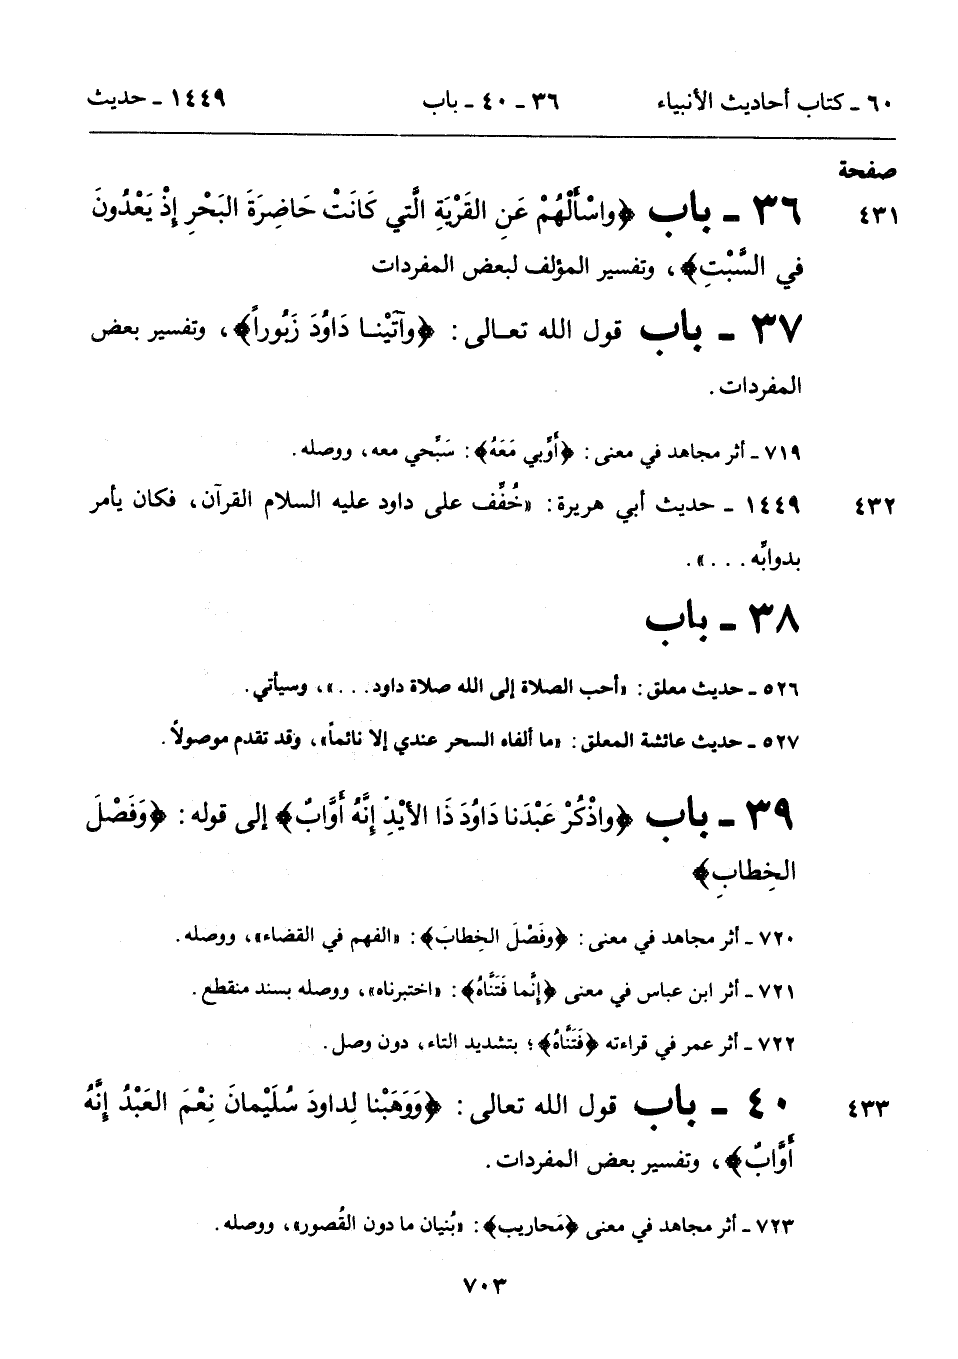 ٦٠ ـ كتاب أحاديث الأنبياء ٣٦ ـ ٤٠ ـ باب ١٤٤٩ ـ حديث
صفحة
٤٣١ ٣٦ ـ باب ﴿واسْأَلْهُمْ عَنِ القَرْيَةِ الَّتي كَانَتْ حَاضِرَةَ البَحْرِ إِذْ يَعْدُونَ
في السَّبْتِ﴾، وتفسير المؤلف لبعض المفردات
٣٧ ـ باب قول الله تعـالى: ﴿وآتَيْنـا دَاوُدَ زَبُوراً﴾، وتفسير بعض
المفردات.
٧١٩ ـ أثر مجاهد في معنى: ﴿أَوِّبي مَعَهُ﴾: سَبِّحي معه، ووصله.
٤٣٢ ١٤٤٩ ـ حديث أبي هريرة: «خُفِّف على داود عليه السلام القرآن، فكان يأمر
بدوابِّه . . .».
٣٨ ـ باب
٥٢٦ ـ حديث معلق: «أحب الصلاة إلى الله صلاة داود. . .»، وسيأتي.
٥٢٧ ـ حديث عائشة المعلق: «ما ألفاه السحر عندي إلا نائماً»، وقد تقدم موصولاً.
٣٩ ـ باب ﴿واذْكُرْ عَبْدَنا دَاوُدَ ذَا الأيْدِ إِنَّهُ أَوَّابٌ﴾ إلى قوله: ﴿وَفَصْلَ
الخِطابِ﴾
٧٢٠ ـ أثر مجاهد في معنى: ﴿وفَصْلَ الخِطابَ﴾: «الفهم في القضاء»، ووصله.
٧٢١ ـ أثر ابن عباس في معنى ﴿إِنَّما فَتَنَّاهُ﴾: «اختبرناه»، ووصله بسند منقطع.
٧٢٢ ـ أثر عمر في قراءته ﴿فَتَنَّاهُ﴾؛ بتشديد التاء، دون وصل.
٤٣٣ ٤٠ ـ باب قول الله تعالى: ﴿وَوَهَبْنا لِداودَ سُلَيْمانَ نِعْمَ العَبْدُ إِنَّهُ
أَوَّابٌ﴾، وتفسير بعض المفردات.
٧٢٣ ـ أثر مجاهد في معنى ﴿مَحاريب﴾: «بُنيان ما دون القُصور»، ووصله.
٧٠٣